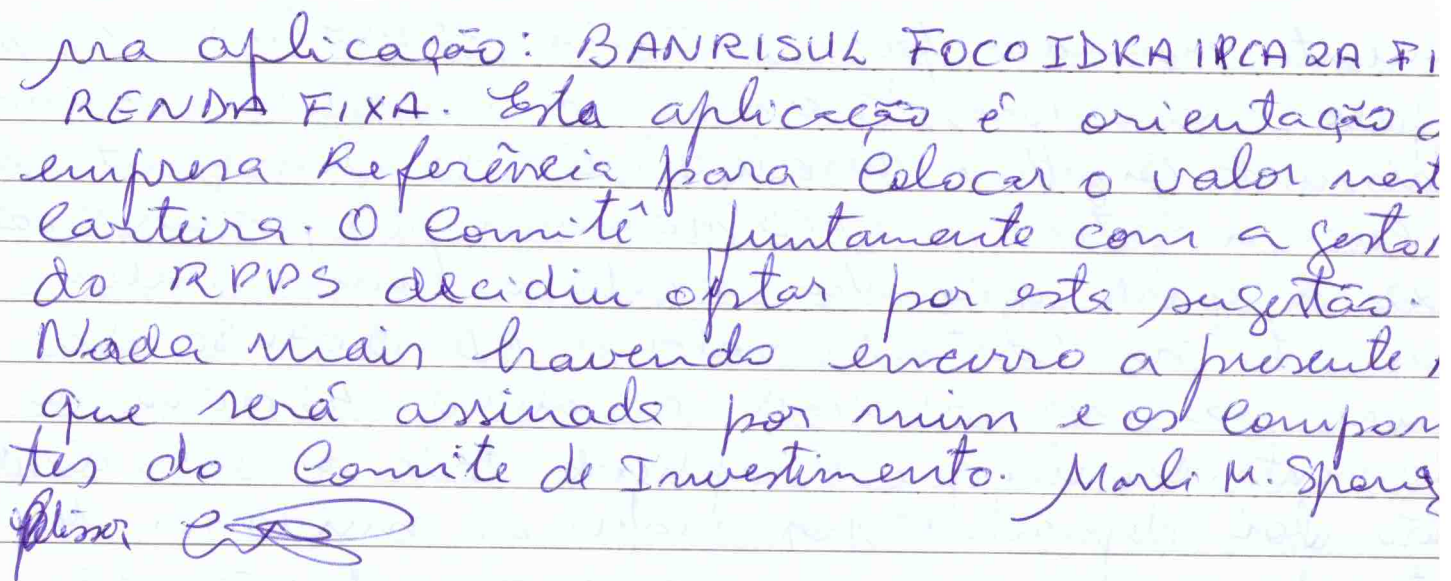 na aplicação: BANRISUL FOCO IDKA IPCA 2A FI
RENDA FIXA. Esta aplicação é orientação d
empresa Referência para colocar o valor nest
carteira. O Comitê juntamente com a gesto
do RPPS decidiu optar por esta sugestão.
Nada mais havendo encerro a presente,
que será assinada por mim e os compon
tes do Comite de Investimento. Marli M.